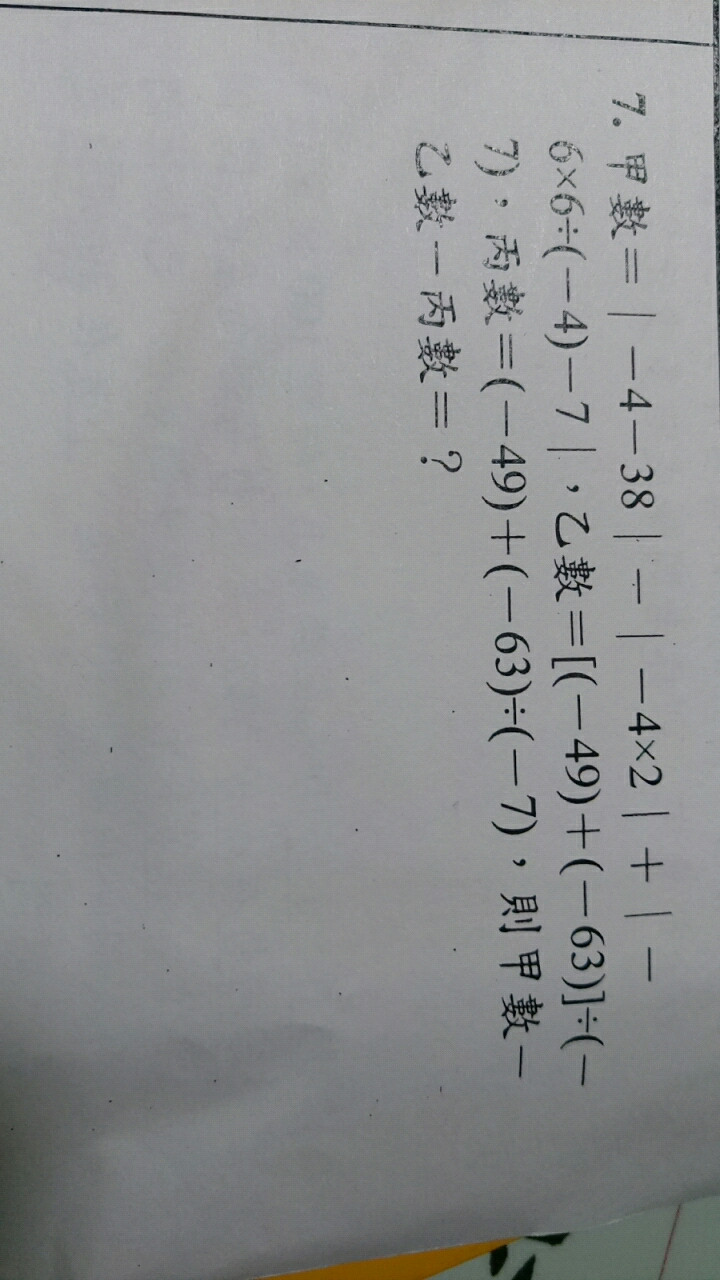 7. 甲數＝|－4－38|－|－4×2|＋|－
6×6÷(－4)－7|，乙數＝[(－49)＋(－63)]÷(－
7)，丙數＝(－49)＋(－63)÷(－7)，則甲數－
乙數－丙數＝？